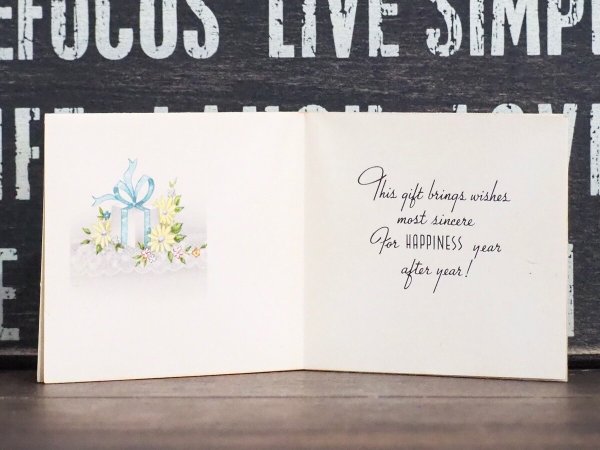 EFOCUS LIVE SIMP
This gift brings wishes
most sincere
For HAPPINESS year
after year!